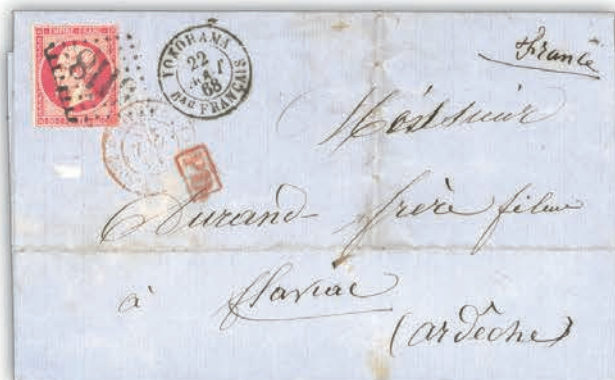 EMPIRE FRANC
YOKOHAMA
22
68
Bau FRANÇAIS
PD
France
Monsieur
Durand frère
à flaviac
(ardèche)